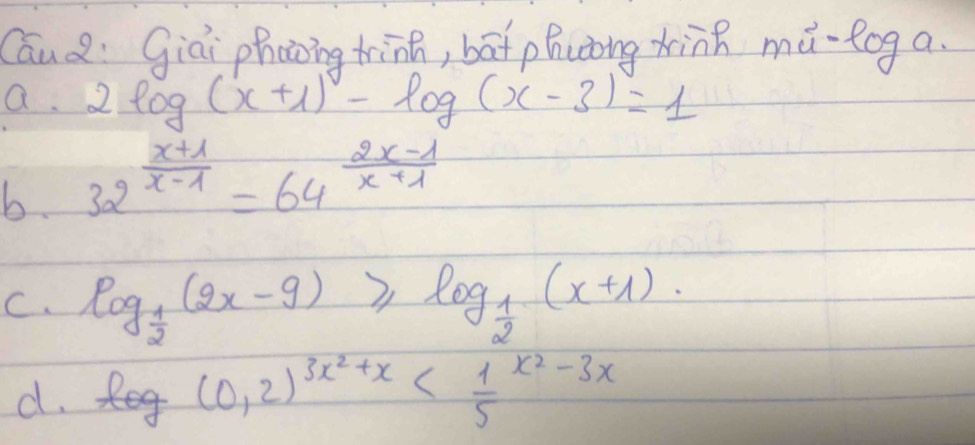 Câu 2: Giải phương trình, bất phương trình mũ - log a.
a. 2 log (x+1) - log (x-3) = 1
b. 32^{\frac{x+1}{x-1}} = 64^{\frac{2x-1}{x+1}}
c. log_{\frac{1}{2}} (2x-9) ⩾ log_{\frac{1}{2}} (x+1).
d. ~~log~~ (0,2)^{3x²+x} < \frac{1}{5}^{x²-3x}